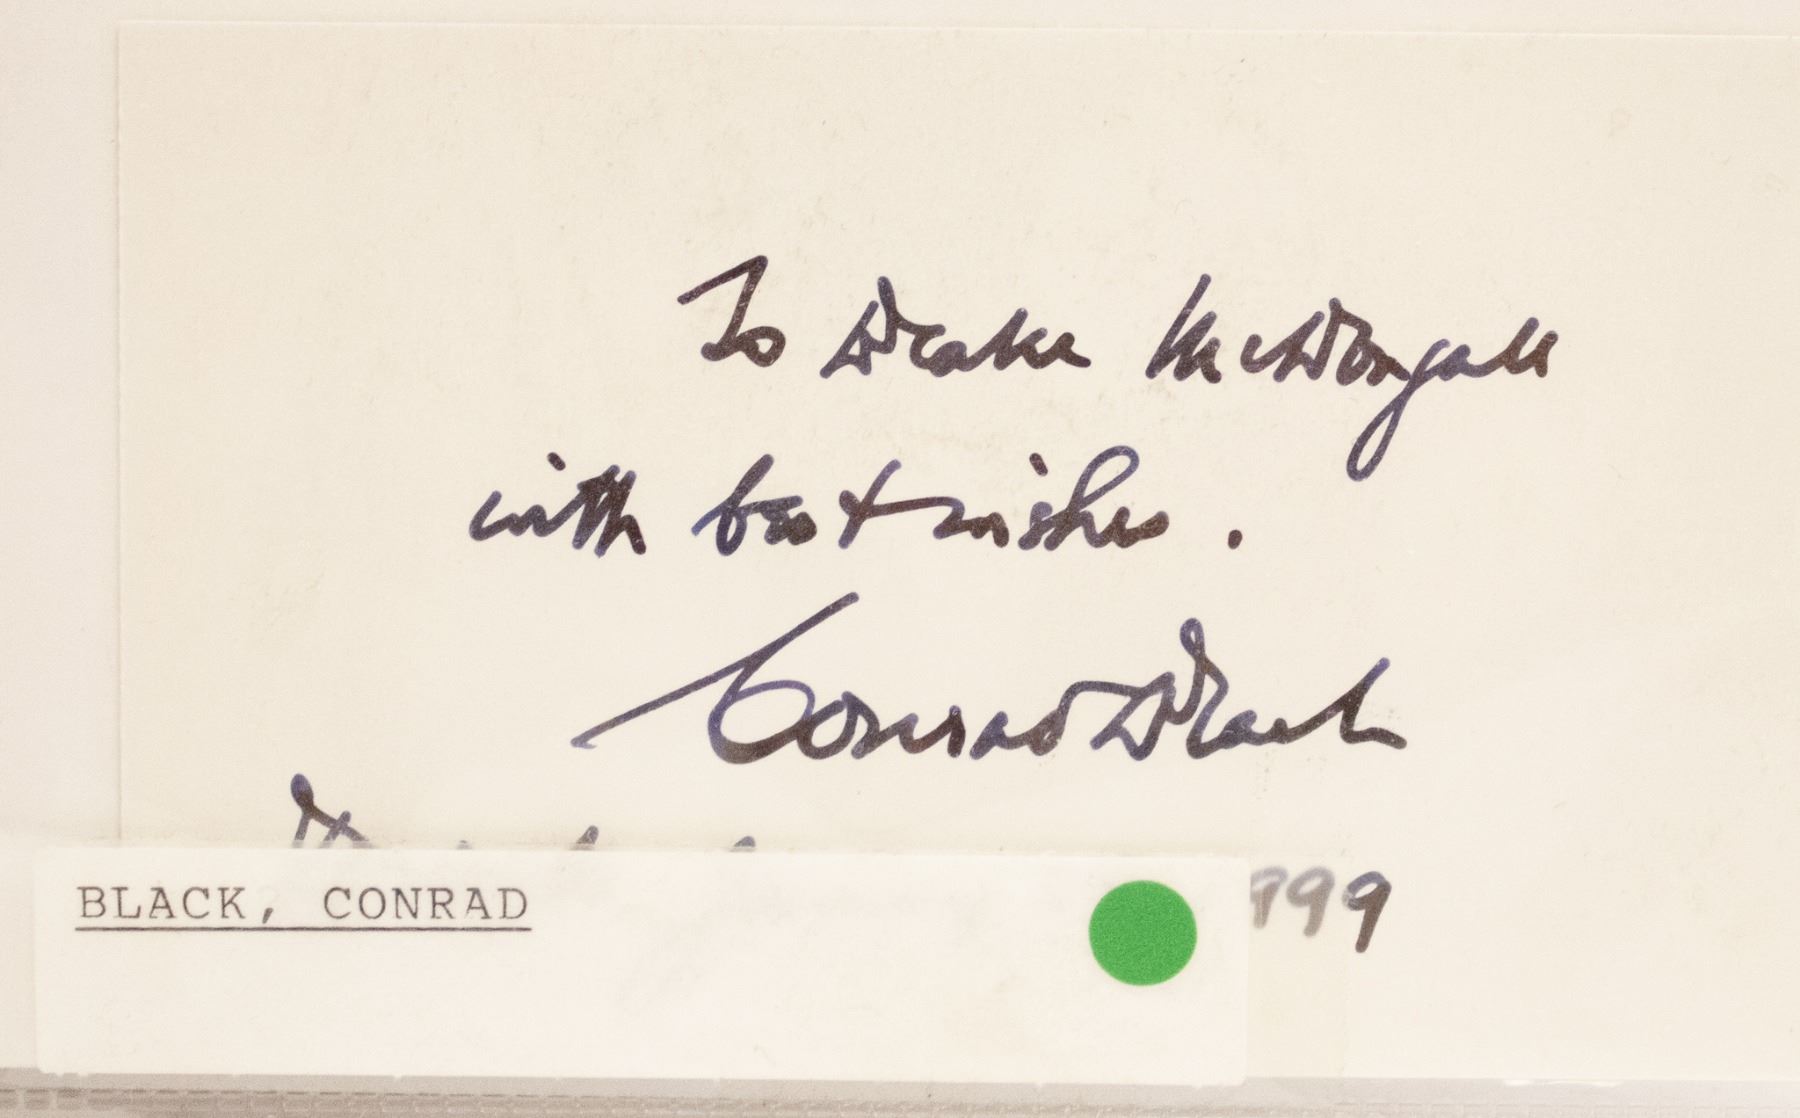 To Drake McDougall
with best wishes.
Conrad Black
999
BLACK, CONRAD